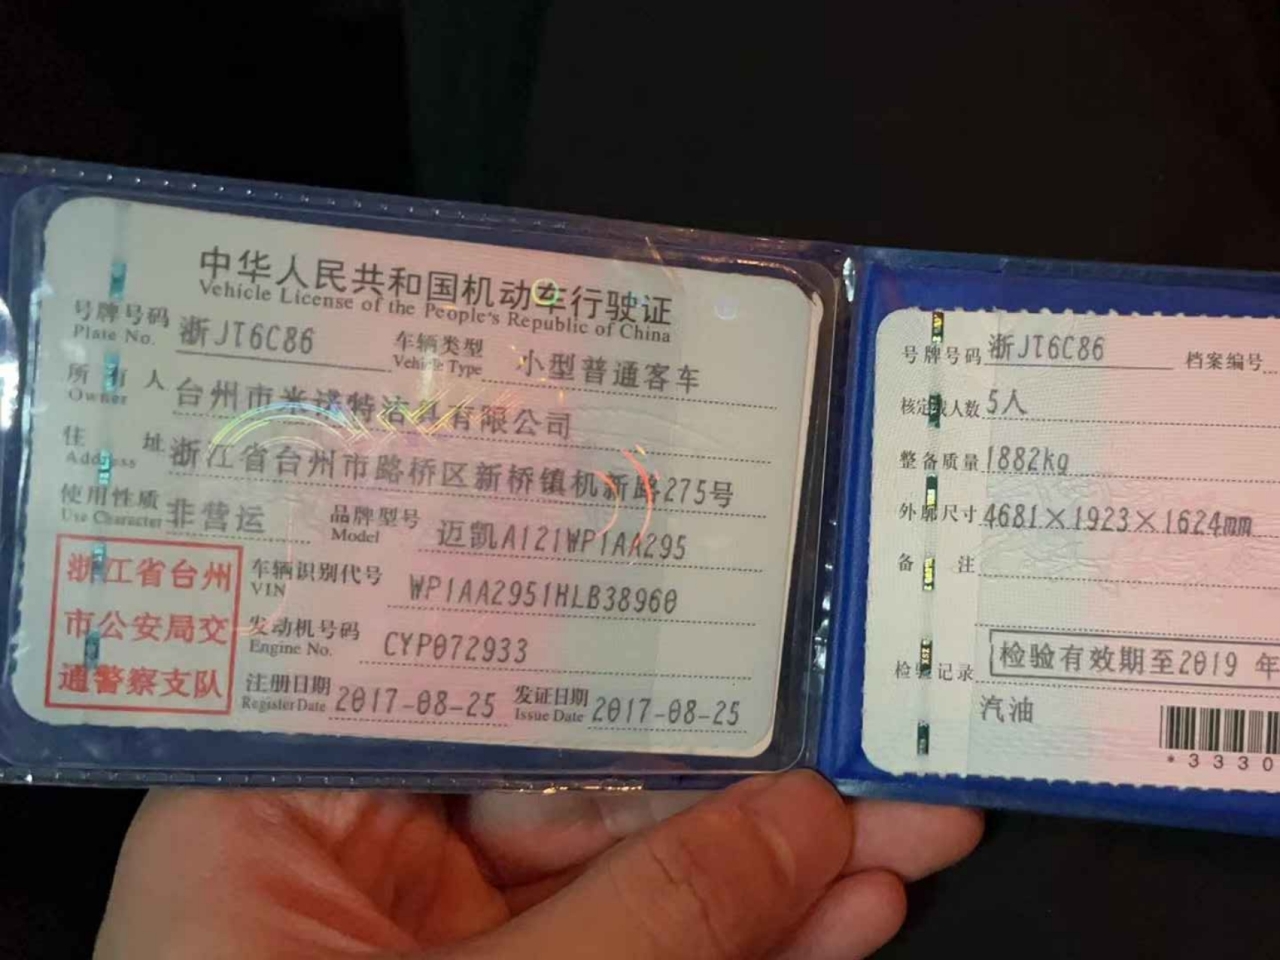 中华人民共和国机动车行驶证
Vehicle License of the People's Republic of China
号牌号码 浙JT6C86 车辆类型 小型普通客车
Plate No. Vehicle Type
所有人 台州市米诺特洁具有限公司
Owner
住址 浙江省台州市路桥区新桥镇机新路275号
Address
使用性质 非营运 品牌型号 迈凯A121WP1AA295
Use Character Model
浙江省台州
市公安局交
通警察支队
车辆识别代号 WP1AA2951HLB38960
VIN
发动机号码 CYP072933
Engine No.
注册日期 2017-08-25 发证日期 2017-08-25
Register Date Issue Date
号牌号码 浙JT6C86 档案编号
核定载人数 5人
整备质量 1882kg
外廓尺寸 4681×1923×1624mm
备注
检验记录 检验有效期至2019 年
汽油
*3330